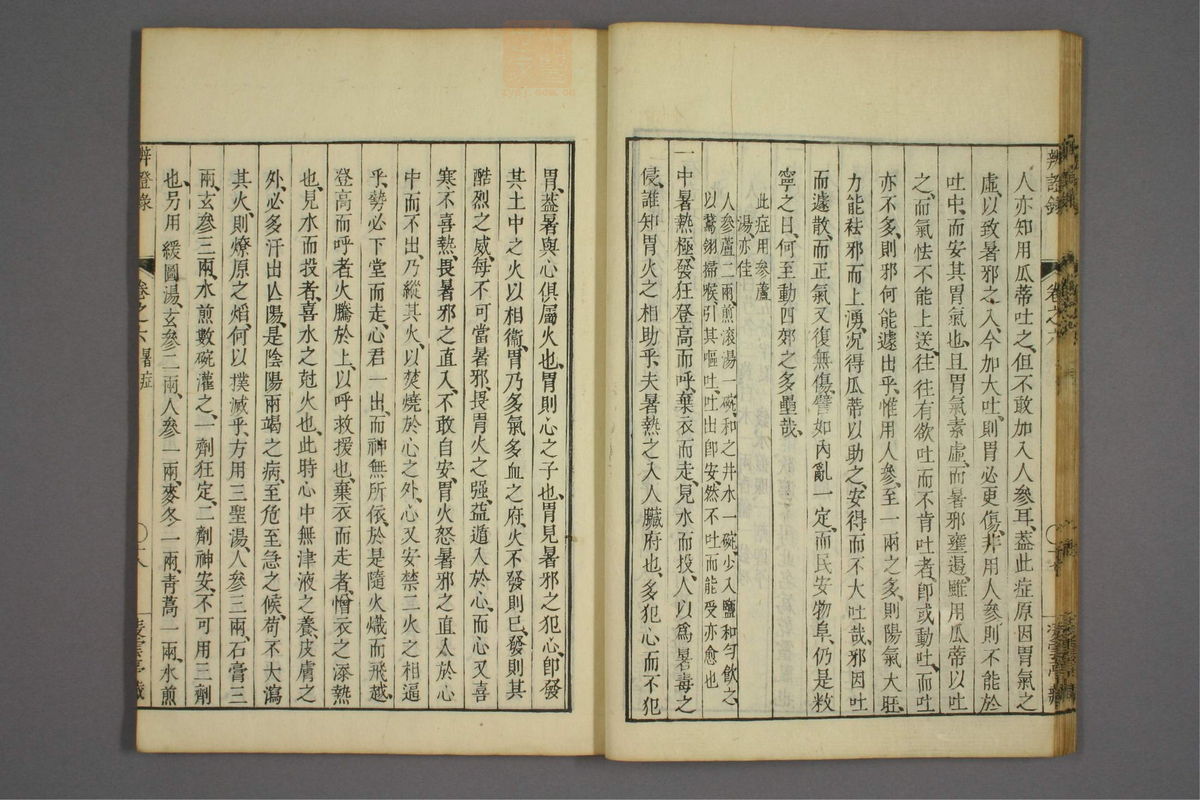 人亦知用瓜蒂吐之、但不敢加入人參耳、蓋此症原因胃氣之
虛、以致暑邪之入、今加大吐、則胃必更傷、非用人參則不能於
吐中、而安其胃氣也、且胃氣素虛、而暑邪壅遏、雖用瓜蒂以吐
之、而氣怯不能上送、往往有欲吐而不肯吐者、卽或動吐、而吐
亦不多、則邪何能遽出乎、惟用人參、至一兩之多、則陽氣大旺、
力能祛邪而上湧、況得瓜蒂以助之、安得而不大吐哉、邪因吐
而遽散、而正氣又復無傷、譬如內亂一定、而民安物阜、仍是敉
寧之日、何至動四郊之多壘哉、
此症用參蘆
湯亦佳
人參蘆二兩、煎滾湯一碗、和之井水一碗、少入鹽和勻飲之、
以鵞翎掃喉、引其嘔吐、吐出卽安然不吐而能受亦愈也
一中暑熱極、發狂登高而呼、棄衣而走、見水而投、人以爲暑毒之
侵、誰知胃火之相助乎、夫暑熱之入人臟府也、多犯心而不犯
辨證錄
卷之六
胃、葢暑與心俱屬火也、胃則心之子也、胃見暑邪之犯心、卽發
其土中之火以相衞、胃乃多氣多血之府、火不發則已、發則其
酷烈之威、每不可當、暑邪、畏胃火之强、益遁入於心、而心又喜
寒不喜熱、畏暑邪之直入、不敢自安、胃火怒暑邪之直太於心
中而不出、乃縱其火、以焚燒於心之外、心又安禁二火之相逼
乎、勢必下堂而走、心君一出、而神無所依、於是隨火熾而飛越、
登高而呼者、火騰於上、以呼救援也、棄衣而走者、憎衣之添熱
也、見水而投者、喜水之尅火也、此時心中無津液之養、皮膚之
外、必多汗出亾陽、是陰陽兩竭之病、至危至急之候、苟不大瀉
其火、則燎原之焰、何以撲滅乎、方用三聖湯、人參三兩、石膏三
兩、玄參三兩、水煎數碗灌之、一劑狂定、二劑神安、不可用三劑
也、另用緩圖湯、玄參二兩、人參一兩、麥冬一兩、靑蒿一兩、水煎
辨證錄
卷之六 暑症